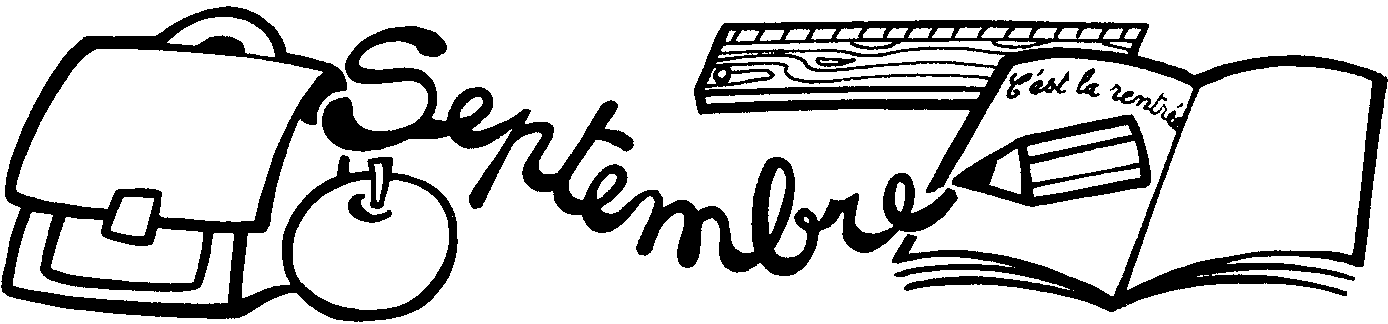 Septembre
C'est la rentrée